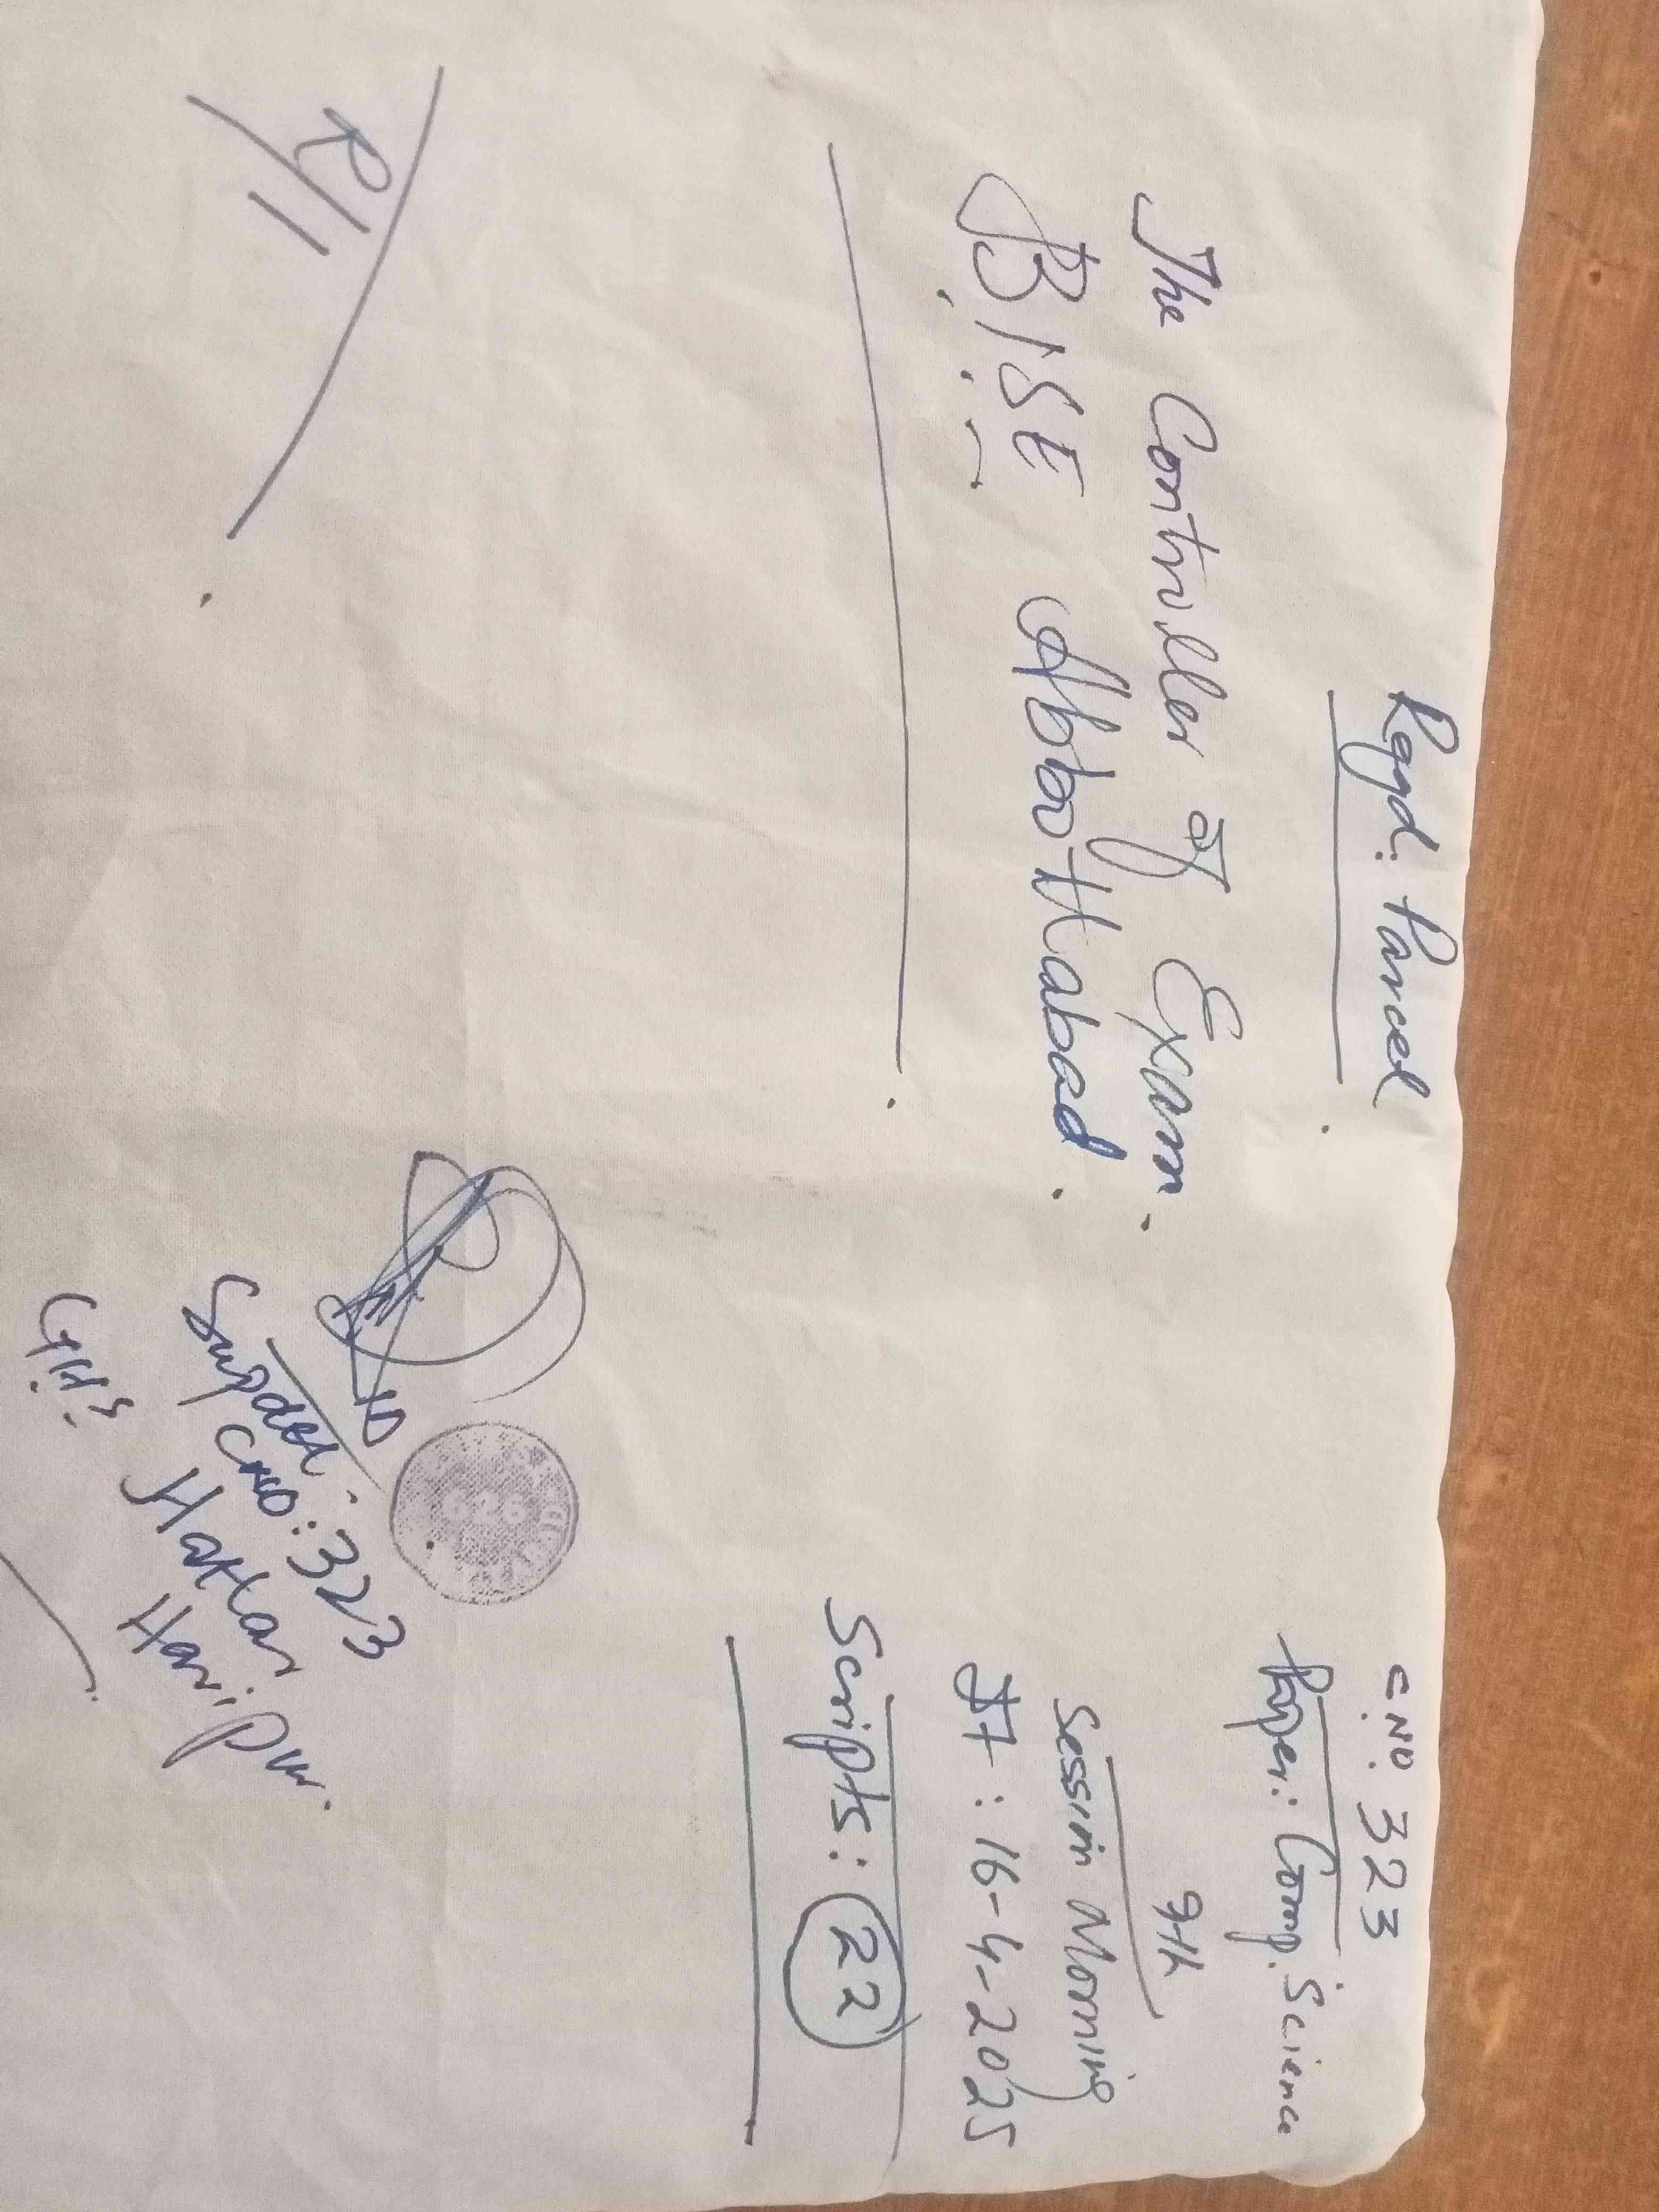 Regd. Parcel
C.No. 323
Paper: Comp. Science
9th
Session Morning
DT: 16-4-2025
Scripts: 22
The Controller of Exam.
B.I.S.E Abbottabad.
R/1
Supdtt.
C No: 323
GHS Hattar
Haripur.
626